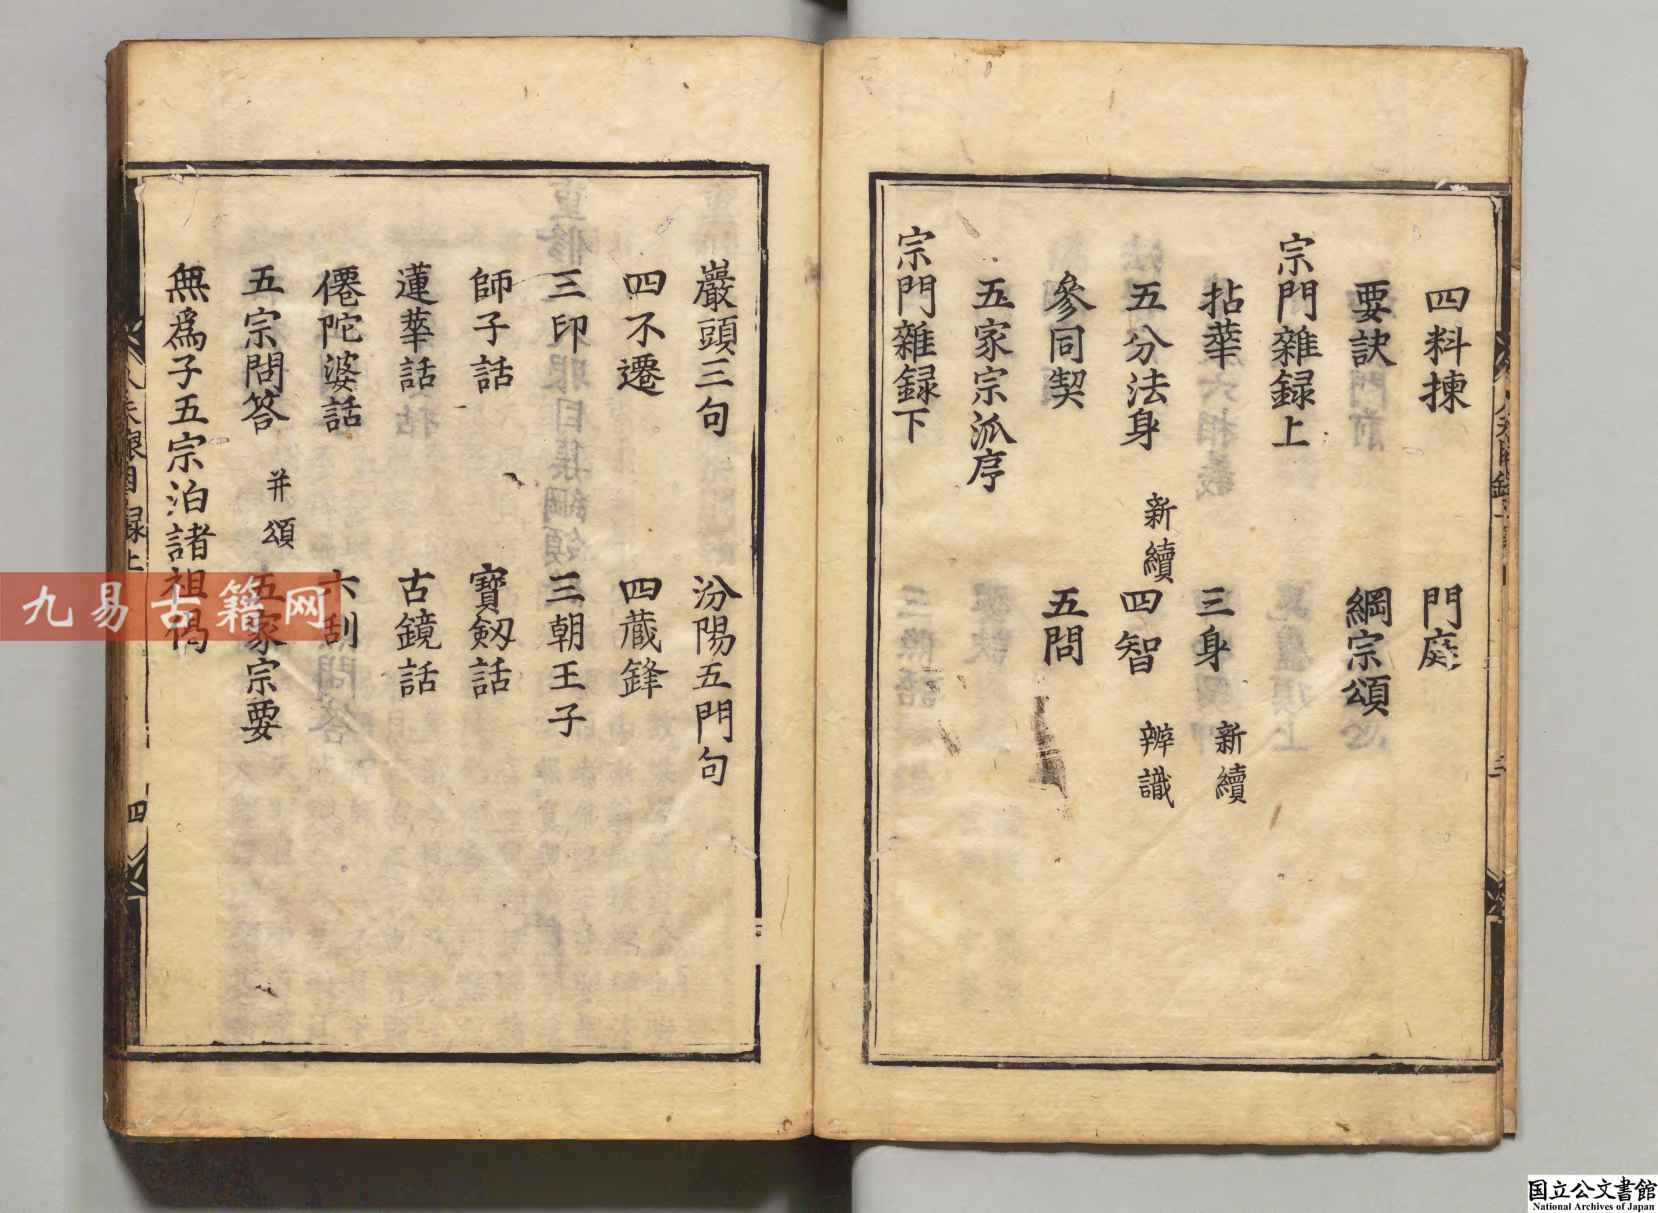 四料揀　門庭
要訣　綱宗頌
宗門雜録上
拈華　三身 新續
五分法身 新續　四智 辨識
參同契　五問
五家宗派序
宗門雜録下
巖頭三句　汾陽五門句
四不遷　四蔵鋒
三印　三朝王子
師子話　寶劔話
蓮華話　古鏡話
僊陀婆話　六刮
五宗問答 并頌　五家宗要
無爲子五宗洎諸祖偈
四
九易古籍网
国立公文書館
National Archives of Japan